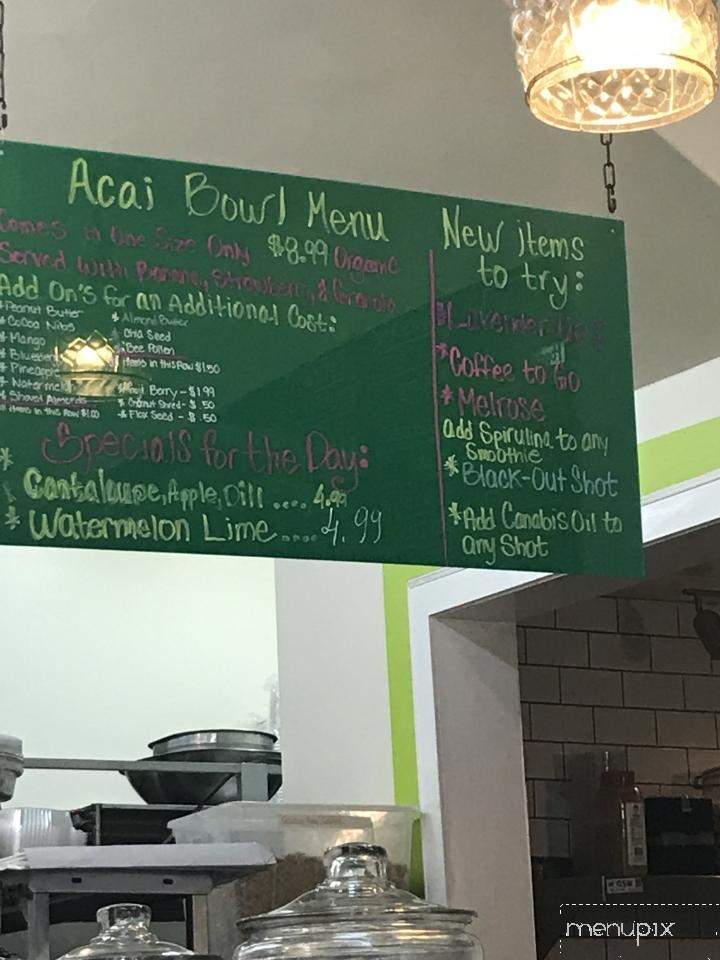 Acai Bowl Menu
Comes in One Size Only $8.99 Organic
Served With Banana, Strawberry, & Granola
Add On's for an Additional Cost:
*Peanut Butter
*Cocoa Nibs
*Mango
*Pineapple
*Watermelon
*Shaved Almonds
items in this Row $1.00
*Almond Butter
*Chia Seed
*Bee Pollen
items in this Row $1.50
Berry - $1.99
*Coconut Shred - $.50
*Flax Seed - $.50
Specials for the Day:
* Cantaloupe, Apple, Dill .... 4.99
* Watermelon Lime ..... 4.99
New items
to try:
*Lavender
*Coffee to Go
*Melrose
add Spirulina to any
Smoothie
*Black-Out Shot
*Add Canabis Oil to
any Shot
menupix